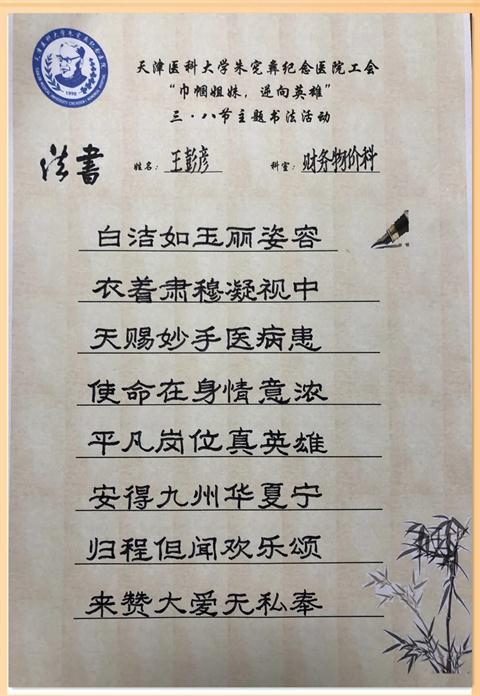 天津医科大学朱宪彝纪念医院工会
“巾帼姐妹，逆向英雄”
三·八节主题书法活动
书法
姓名：王彭彦 科室：财务物价科
白洁如玉丽姿容
衣着肃穆凝视中
天赐妙手医病患
使命在身情意浓
平凡岗位真英雄
安得九州华夏宁
归程但闻欢乐颂
来赞大爱无私奉